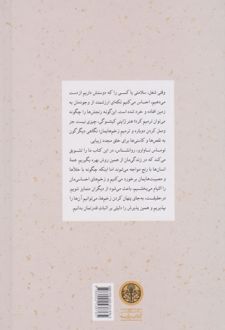 وقتی شغل، سلامتی یا کسی را که دوستش داریم از دست
می‌دهیم، احساس می‌کنیم تکه‌ای ارزشمند از وجودمان به
زمین افتاده و خرد شده است. این‌گونه رنج‌ها را چگونه
می‌توان ترمیم کرد؟ هنر ژاپنی کینتسوگی، چیزی نیست جز
وصل کردن دوباره و ترمیم زخم‌هایمان؛ نگاهی دیگرگون
به نقص‌ها و کاستی‌ها برای خلق مجدد زیبایی.
توماس ناوارو، روانشناس، در این کتاب ما را تشویق
می‌کند که در زندگی‌مان از همین روش بهره بگیریم. همهٔ
انسان‌ها با رنج مواجه می‌شوند اما اینکه چگونه با خلأها
و مصیبت‌هایمان برخورد می‌کنیم و زخم‌های احساسی‌مان
را التیام می‌بخشیم، باعث می‌شود از دیگران متمایز شویم.
درحقیقت، به‌جای پنهان کردن زخم‌ها، می‌توانیم آن‌ها را
بپذیریم و همین پذیرش را دلیلی بر اثبات قدرتمان بدانیم.